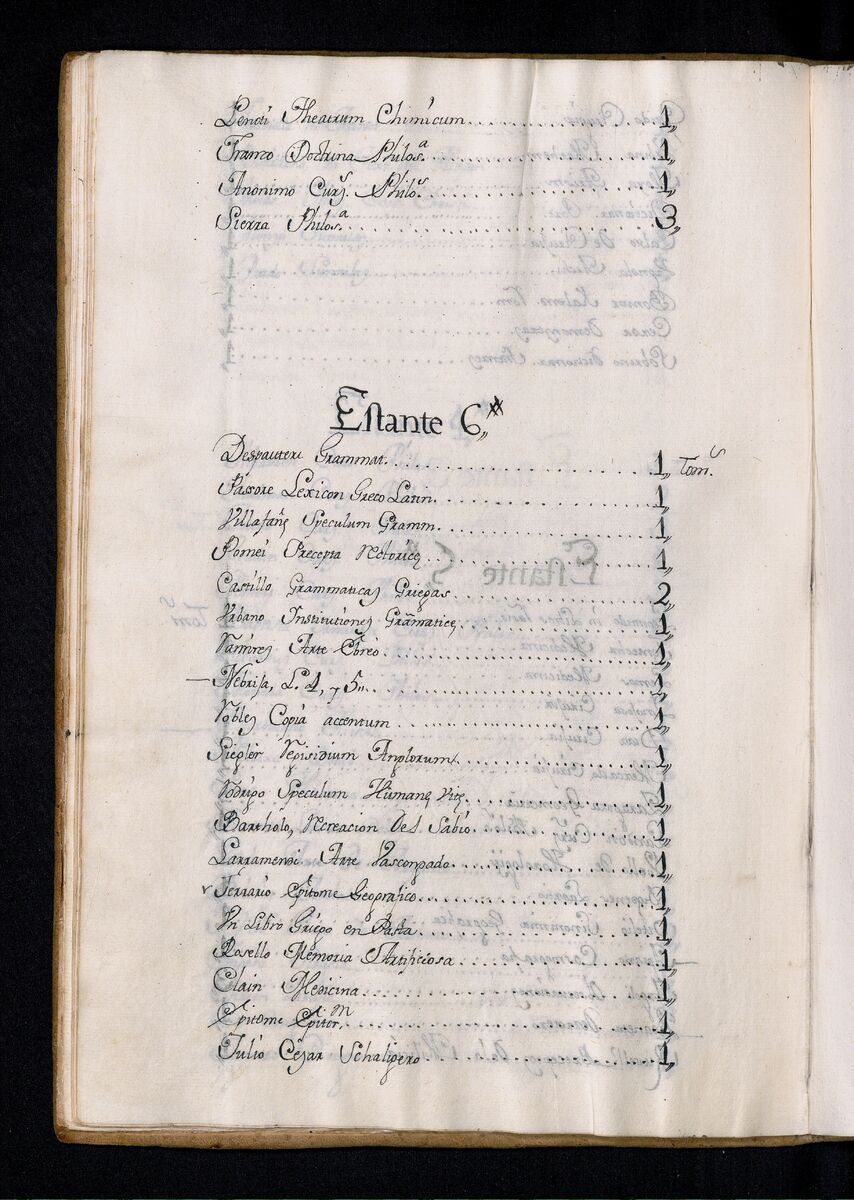 Pencti Theatrum Chimicum. 1,,
Franco Doctrina Philosª. 1,,
Anonimo Curs. Philoˢ. 1,,
Sierra Philosª. 3,,
Estante 6,,
Despauteri Grammat. 1,, Tomˢ.
Passore Lexicon Greco Latin. 1,,
Villafañ Speculum Gramm. 1,,
Pomei Precepta Retorice 1,,
Castillo Grammaticas Griegas 2,,
Vrbano Institutiones Gramatice, 1,,
Ramires Arte Ebreo. 1,,
Nebrisa, L.º 4, y 5,, 1,,
Robles Copia accentum 1,,
Siegler Anplorum. 1,,
Rodrigo Speculum Humane Vite. 1,,
Bartholo, Recreacion del Sabio. 1,,
Larramendi Arte Vascongado. 1,,
Ferrario Epitome Geografico. 1,,
Vn Libro Griego en Pasta. 1,,
Rosello Memoria Artificiosa 1,,
Clain Medicina 1,,
Epitome Epitomᵐ. 1,,
Julio Cesar Schaligero 1,,